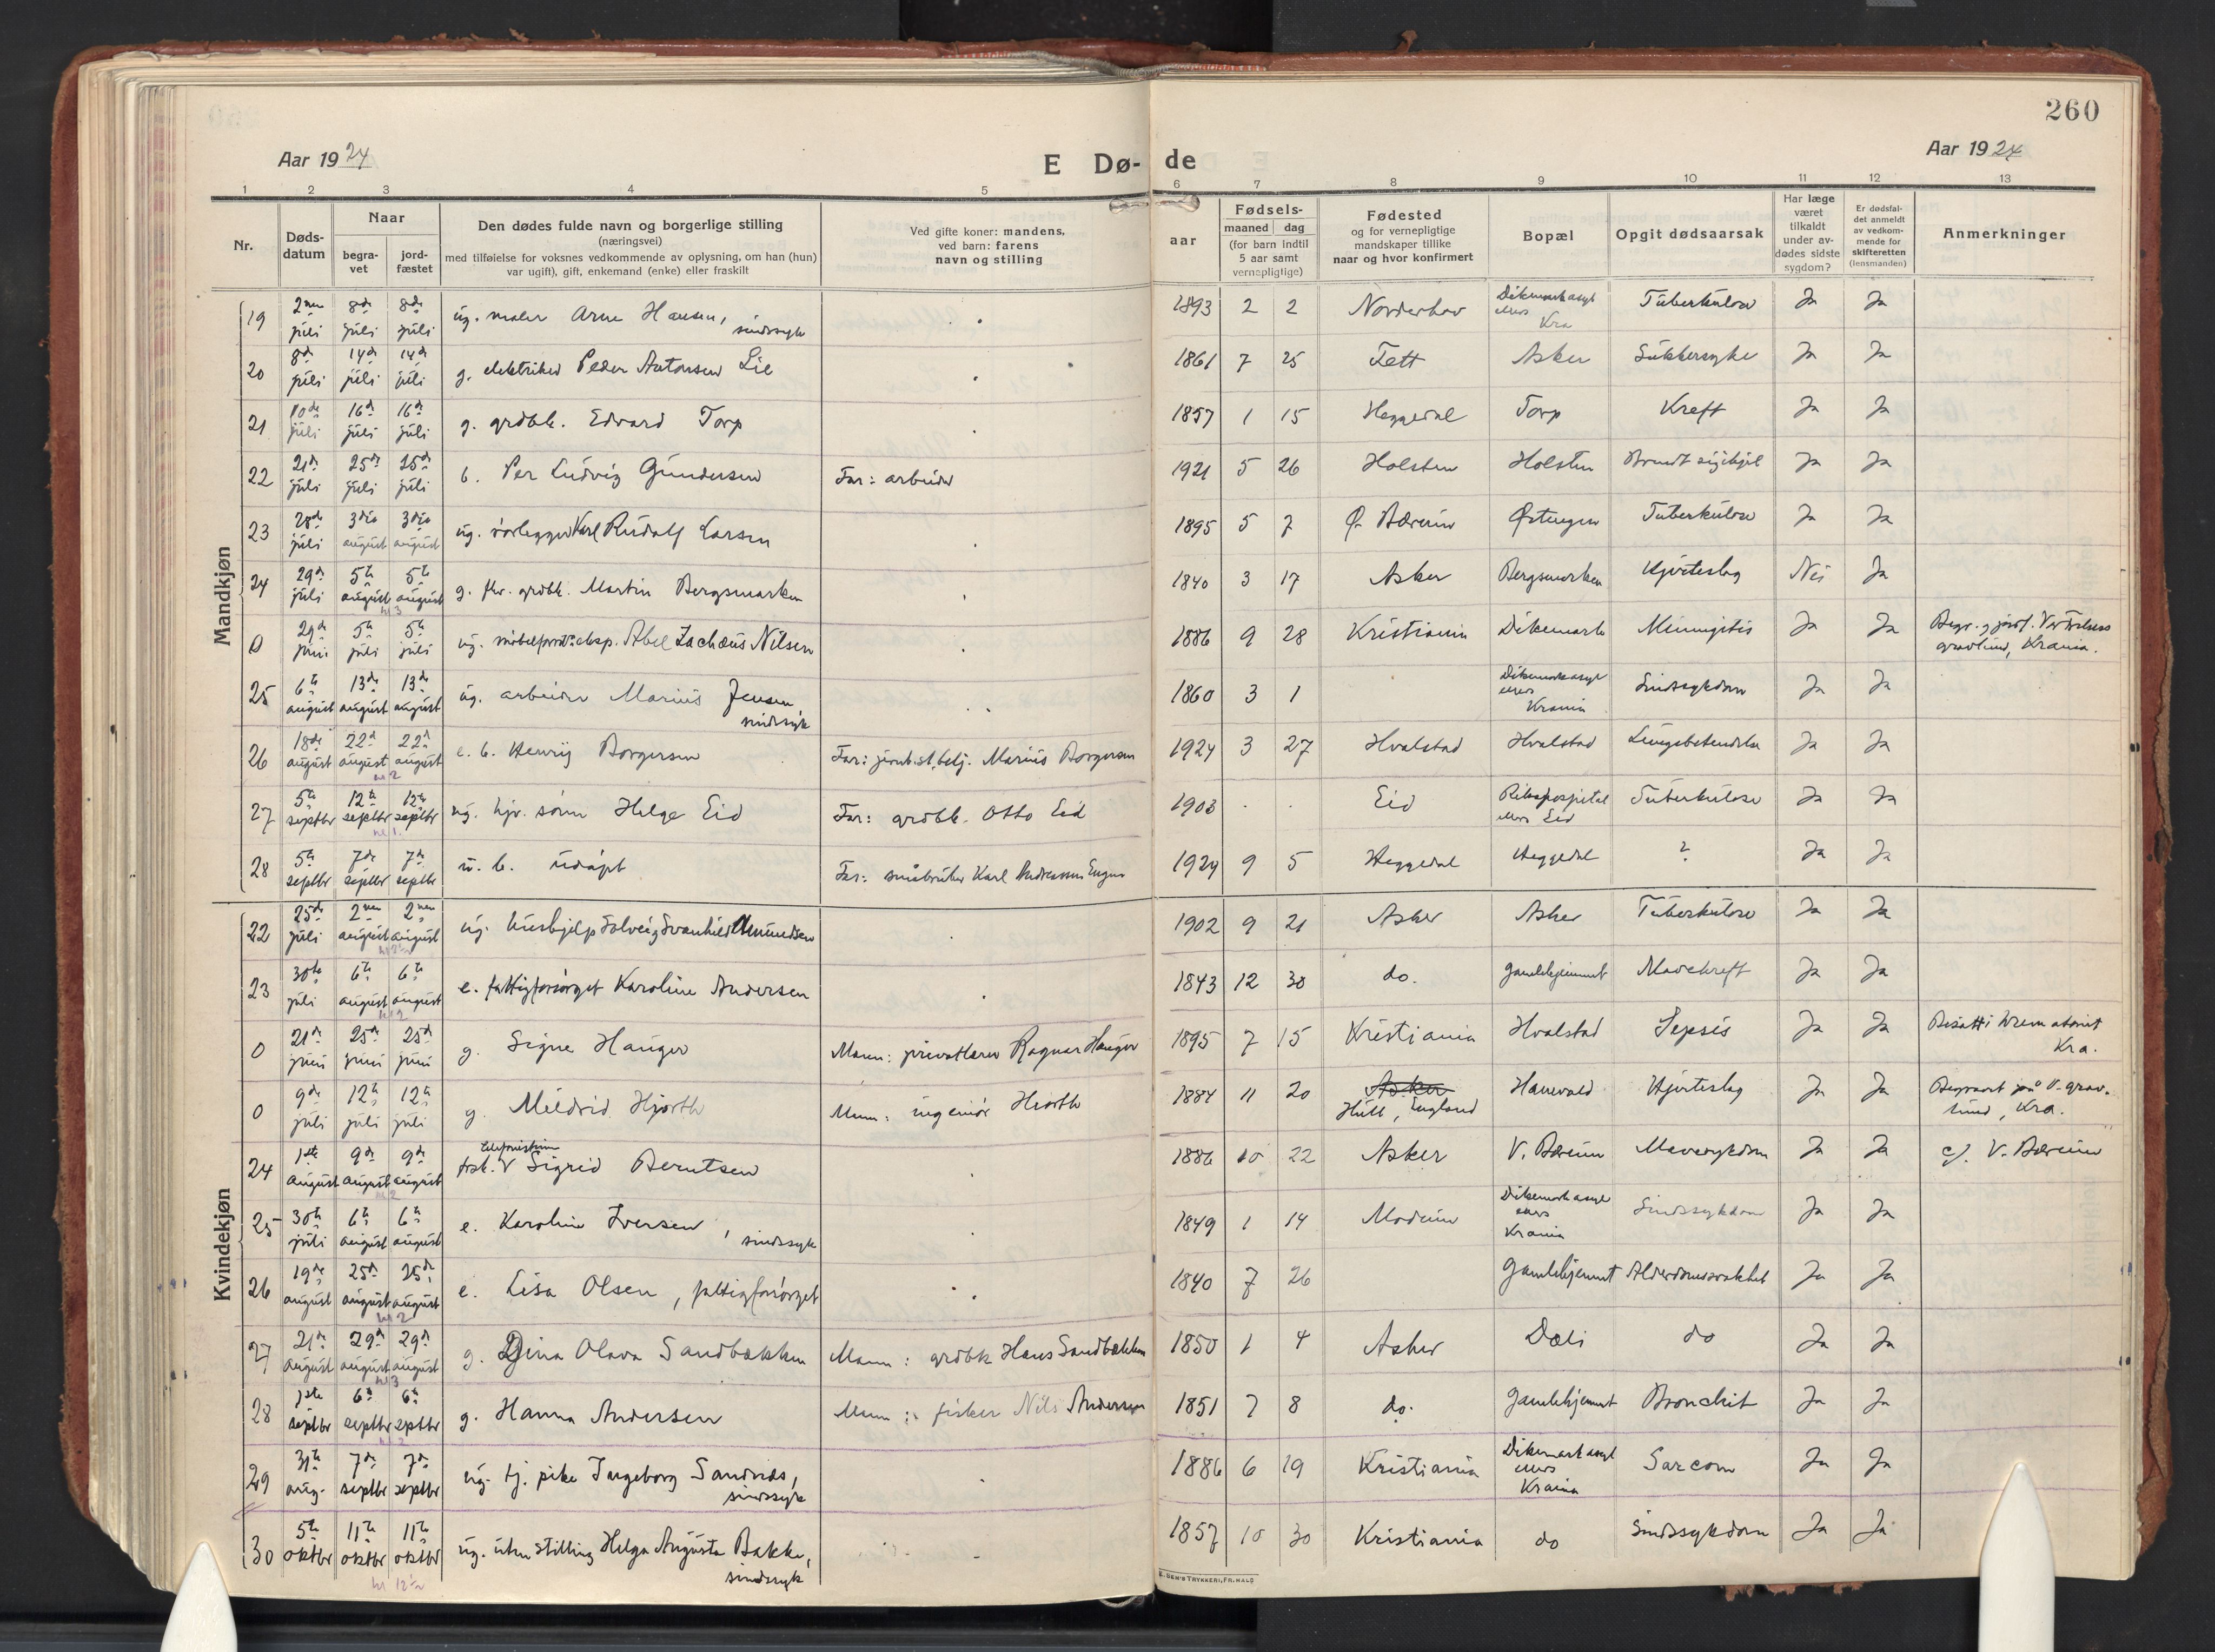 260
Aar 1924
E Dø-
de
Aar 1924
1 2 3 4 5 6 7 8 9 10 11 12 13
Nr.
Døds-
datum
Naar
begra-
vet
jord-
fæstet
Den dødes fulde navn og borgerlige stilling
(næringsvei)
med tilføielse for voksnes vedkommende av oplysning, om han (hun)
var ugift), gift, enkemand (enke) eller fraskilt
Ved gifte koner: mandens,
ved barn: farens
navn og stilling
Fødsels-
aar
maaned dag
(for barn indtil
5 aar samt
vernepligtige)
Fødested
og for vernepligtige
mandskaper tillike
naar og hvor konfirmert
Bopæl
Opgit dødsaarsak
Har læge
været
tilkaldt
under av-
dødes sidste
sygdom?
Er dødsfal-
det anmeldt
av vedkom-
mende for
skifteretten
(lensmanden)
Anmerkninger
Mandkjøn
19 2nen juli 8de juli 8de juli ug. maler Arne Hansen, sindssyk 1893 2 2 Norderhov Dikemark asyl ellers Kra Tuberkulose Ja Ja
20 8de juli 14de juli 14de juli g. elektriker Peder Antonsen Lie 1861 7 25 Tett Asker Sukkersyke Ja Ja
21 10de juli 16de juli 16de juli g. grdbk. Edvard Torp 1857 1 15 Heggedal Torp Kreft Ja Ja
22 21de juli 25de juli 25de juli b. Per Ludvig Gundersen Far: arbeider 1921 5 26 Holsten Holsten Ja Ja
23 28de juli 3die august 3die august ug. rørlegger Karl Rudolf Larsen 1895 5 7 Ø. Bærum Østengen Tuberkulose Ja Ja
24 29de juli 5te august 5te august g. fhv. grdbk. Martin Bergsmarken 1840 3 17 Asker Bergsmarken Hjerteslag Nei Ja
kl 3
0 29de juni 5te juli 5te juli ug. Abel Zachæus Nilsen 1886 9 28 Kristiania Dikemark Meningitis Ja Ja Begr. og jordf. Vor Frelsers gravlund, Krania.
25 6te august 13de august 13de august ug. arbeider Marius Jensen sindssyk 1860 3 1 Dikemark asyl ellers Krania Sindssykdom Ja Ja
26 18de august 22de august 22de august e. b. Henry Borgersen Far: jernb.st.betj. Marius Borgersen 1924 3 27 Hvalstad Hvalstad Lungebetendelse Ja Ja
kl 2
27 5te septbr 12te septbr 12te septbr ug. hjv. sønn Helge Eid Far: grdbk. Otto Eid 1903 Eid Rikshospitalet ellers Eid Tuberkulose Ja Ja
kl 1.
28 5te septbr 7de septbr 7de septbr u. b. udøpt Far: småbruker Karl Andreassen Engen 1924 9 5 Heggedal Heggedal ? Ja Ja
Kvindekjøn
22 25de juli 2nen august 2nen august ug. hushjelp Solveig Svanhild Amundsen 1902 9 21 Asker Asker Tuberkulose Ja Ja
23 30te juli 6te august 6te august e. fattigforsørget Karoline Andersen 1843 12 30 do. Gamlehjemmet Mavekreft Ja Ja
kl 2
0 21de juni 25de juni 25de juni g. Signe Hauger Mann: privatlærer Ragnar Hauger 1895 7 15 Kristiania Hvalstad Sepsis Ja Ja Bisatt i krematoriet Kra.
0 9de juli 12te juli 12te juli g. Mildrid Hjorth Mann: ingeniør Hjorth 1884 11 20 Asker Hull, England Hanevold Hjerteslag Ja Ja Begravet på V. gravlund, Kra.
24 1ste august 9de august 9de august frk. telefonistinne Sigrid Berntsen 1886 10 22 Asker V. Bærum Mavesykdom Ja Ja cf. V. Bærum
kl 2
25 30te juli 6te august 6te august e. Karoline Iversen, sindssyk 1849 1 14 Modum Dikemark asyl ellers Krania Sindssykdom Ja Ja
26 19de august 25de august 25de august e. Lisa Olsen, fattigforsørget 1840 7 26 Gamlehjemmet Alderdomssvakhet Ja Ja
kl 2
27 21de august 29de august 29de august g. Dina Olava Sandbakken Mann: grdbk Hans Sandbakken 1850 1 4 Asker Dæli do Ja Ja
kl 3
28 1ste septbr 6te septbr 6te septbr g. Hanna Andersen Mann: fisker Nils Andersen 1851 7 8 do. Gamlehjemmet Bronchit Ja Ja
kl 2
29 31te aug. 7de septbr 7de septbr ug. tj. pike Ingeborg Sandnes, sindssyk 1886 6 19 Kristiania Dikemark asyl ellers Krania Sarcom Ja Ja
30 5te oktbr 11te oktbr 11te oktbr ug. uten stilling Helga Augusta Bakke, sindssyk 1857 10 30 Kristiania do Sindssykdom Ja Ja
kl 12½
E. SEM'S TRYKKERI, FR.HALD